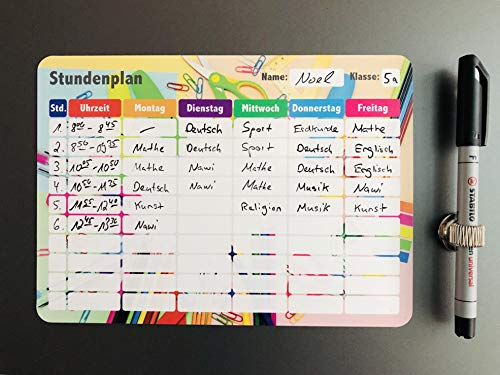 Stundenplan Name: Noel Klasse: 5a
Std. Uhrzeit Montag Dienstag Mittwoch Donnerstag Freitag
1. 8:00 - 8:45 — Deutsch Sport Erdkunde Mathe
2. 8:50 - Mathe Deutsch Sport Deutsch Englisch
3. 10:05 - 10:50 Mathe Nawi Mathe Deutsch Englisch
4. 10:50 - 11:35 Deutsch Nawi Mathe Musik Nawi
5. 11:55 - 12:40 Kunst Religion Musik Kunst
6. 12:45 - 13:30 Nawi
STABILO
universal